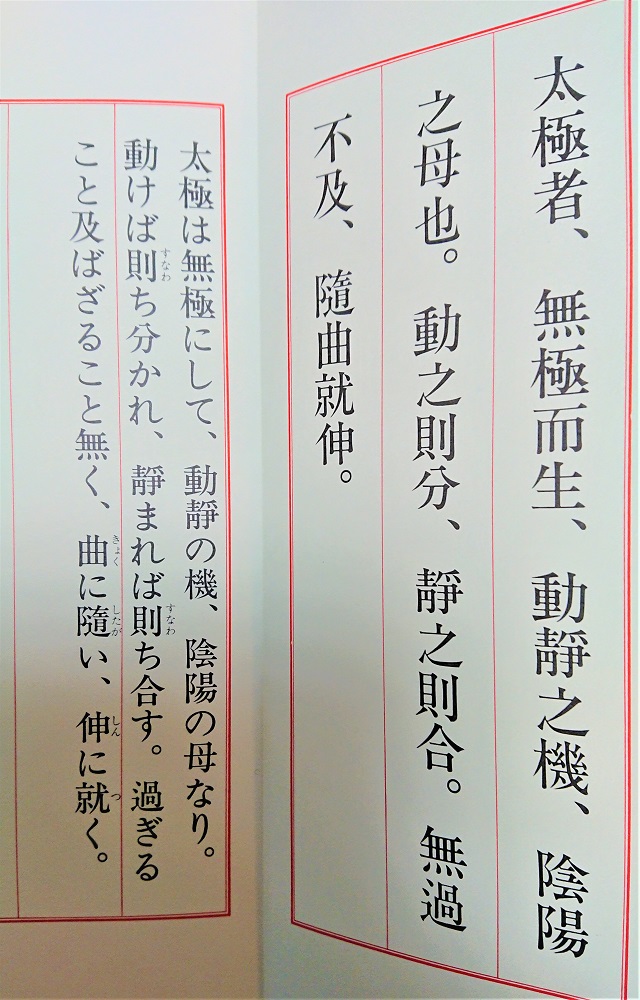 太極者、無極而生、動靜之機、陰陽
之母也。動之則分、靜之則合。無過
不及、隨曲就伸。
太極は無極にして、動靜の機、陰陽の母なり。
動けば則ち分かれ、靜まれば則ち合す。過ぎる
すなわ
すなわ
こと及ばざること無く、曲に隨い、伸に就く。
きょく
したが
しん
つ